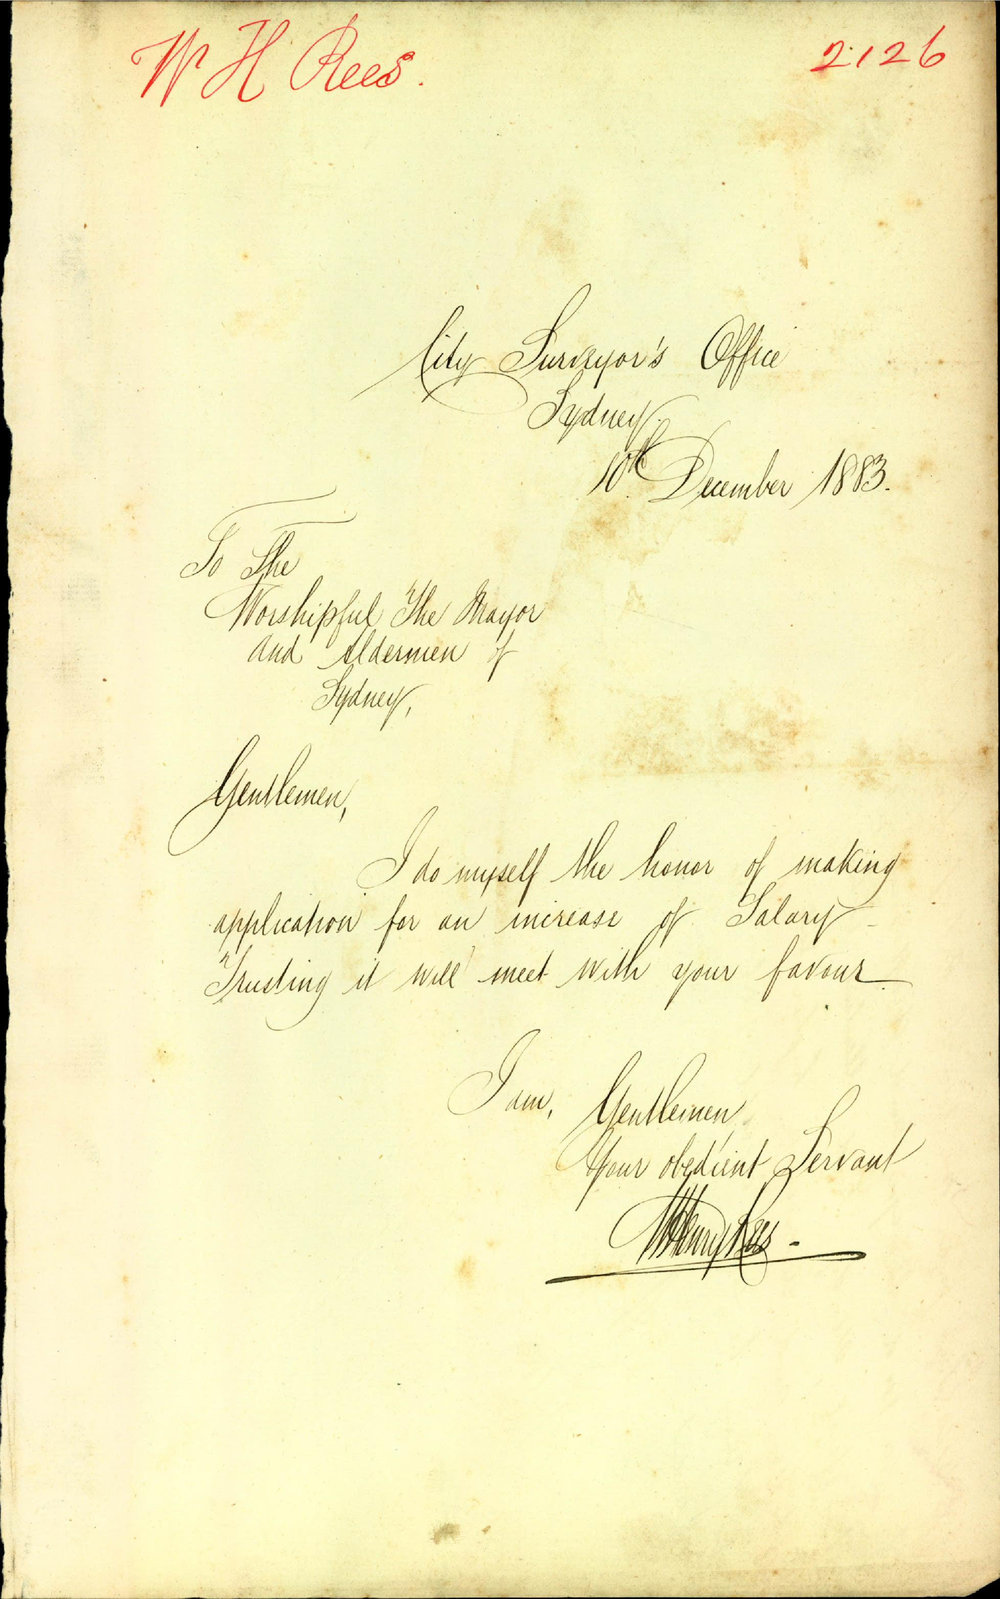 W H Rees.
2126
City Surveyor's Office
Sydney.
10th December 1883.
To The
Worshipful The Mayor
and Aldermen of
Sydney,
Gentlemen,
I do myself the honor of making
application for an increase of Salary
Trusting it will meet with your favour
I am, Gentlemen
Your obedient Servant
W Henry Rees -